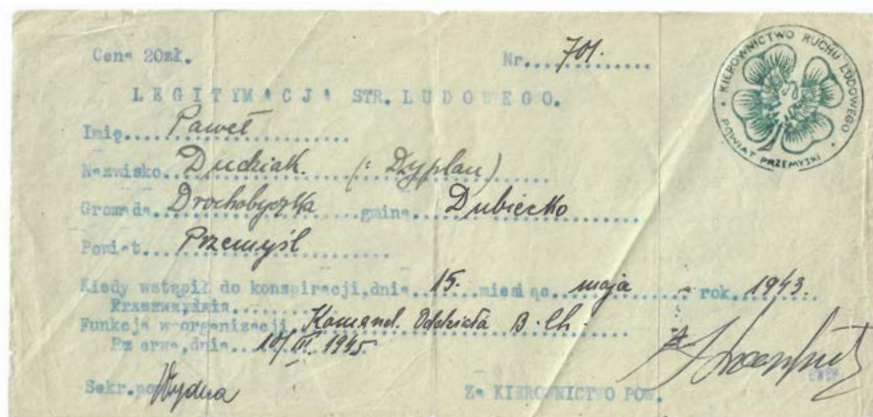 Cena 20zł. Nr. 701.
KIEROWNICTWO RUCHU LUDOWEGO
POWIAT PRZEMYSKI
LEGITYMACJA STR. LUDOWEGO.
Imię.... Paweł
Nazwisko. Dudziak. (: Dyplan)
Gromada. Drochobyczka gmina. Dubiecko
Powiat. Przemyśl
Kiedy wstąpił do konspiracji, dnia 15. miesiąc maja - rok 1943.
Funkcja w organizacji Komend. Oddziała B. Ch.
dnia 10/III 1945.
Sekr. pow. Wydna Za KIEROWNICTWO POW.